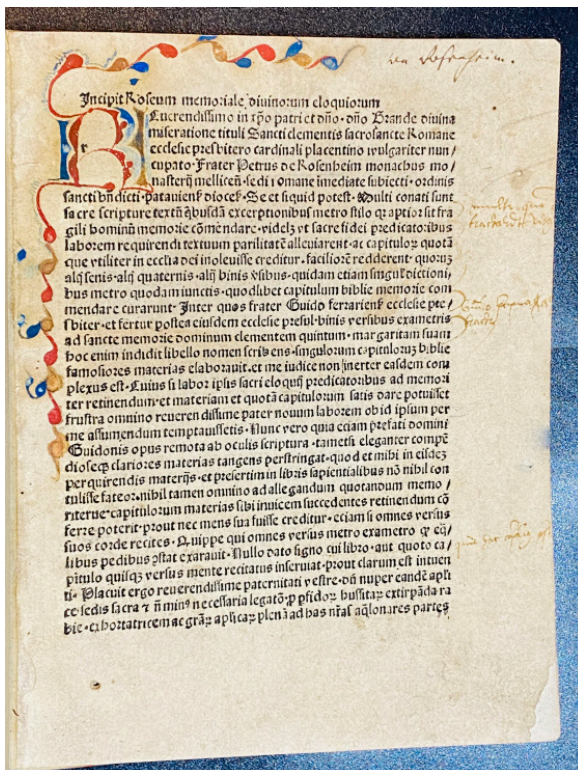 Incipit Roseum memoriale diuinorum eloquiorum
Euerendissimo in xp̄o patri et dn̄o · dn̄o Brande diuina
miseratione tituli Sancti clementis sacrosancte Romane
ecclesie presbitero cardinali placentino wlgariter nun/
cupato · Frater Petrus de Rosenheim monachus mo/
nasterij mellicen̄ · sedi romane imediate subiecti · ordinis
sancti bn̄dicti · patauien̄ dioceẜ · Se et siquid potest · Multi conati sunt
sacre scripture textū q̄busdā exceptionibus metro stilo qr aptior sit fra
gili hominū memorie cōmendare · videlꝫ vt sacre fidei predicatoribus
laborem requirendi textuum parilitatē alleuiarent · ac capitulorꝫ quotā
que vtiliter in ecclia dei inoleuisse creditur · faciliorē redderent · quorꝫ
alij senis · alij quaternis · alij binis v̄sibus · quidam etiam singul dictioni/
bus metro quodam iunctis · quodlibet capitulum biblie memorie com
mendare curarunt · Inter quos frater Guido ferrarien̄ ecclesie pre/
sbiter · et fertur postea eiusdem ecclesie presul · binis versibus exametris
ad sancte memorie dominum clementem quintum · margaritam suam
hoc enim indidit libello nomen scribens · singulorum capitulorꝫ biblie
famosiores materias elaborauit · et me iudice non inerter easdem com
plexus est · Cuius si labor ipsis sacri eloquij predicatoribus ad memori
ter retinendum · et materiam et quotā capitulorum satis dare potuisset
frustra omnino reuerendissime pater nouum laborem ob id ipsum per
me assumendum temptaussetis · Nunc vero quia eciam prefati domini
Guidonis opus remota ab oculis scriptura · tametsi eleganter compē
dioseqꝫ clariores materias tangens perstringat · quod et mihi in eisdeꝫ
perquirendis materijs · et presertim in libris sapientialibus nō nihil con
tulisse fateor · nihil tamen omnino ad allegandum quotandum memo/
riterue · capitulorum materias sibi inuicem succedentes retinendum cō
ferre poterit · prout nec mens sua fuisse creditur · eciam si omnes versus
suos corde recites · Quippe qui omnes versus metro exametro qr eq̄/
libus pedibus ꝯstat exarauit · Nullo dato signo cui libro · aut quoto ca/
pitulo quisqꝫ versus mente recitatus inseruiat · prout clarum est intuen
ti · Placuit ergo reuerendissime paternitati vestre · dn̄ nuper eandē apl̄i
ce sedis sacra ⁊ n̄ min9 necessaria legatō · ꝓ ꝑfidoꝝ hussitaꝝ extirpāda ra
bie · exhortatricem ac grāꝝ apl̄icaꝝ plenā ad has nr̄as aq̄lonares partes